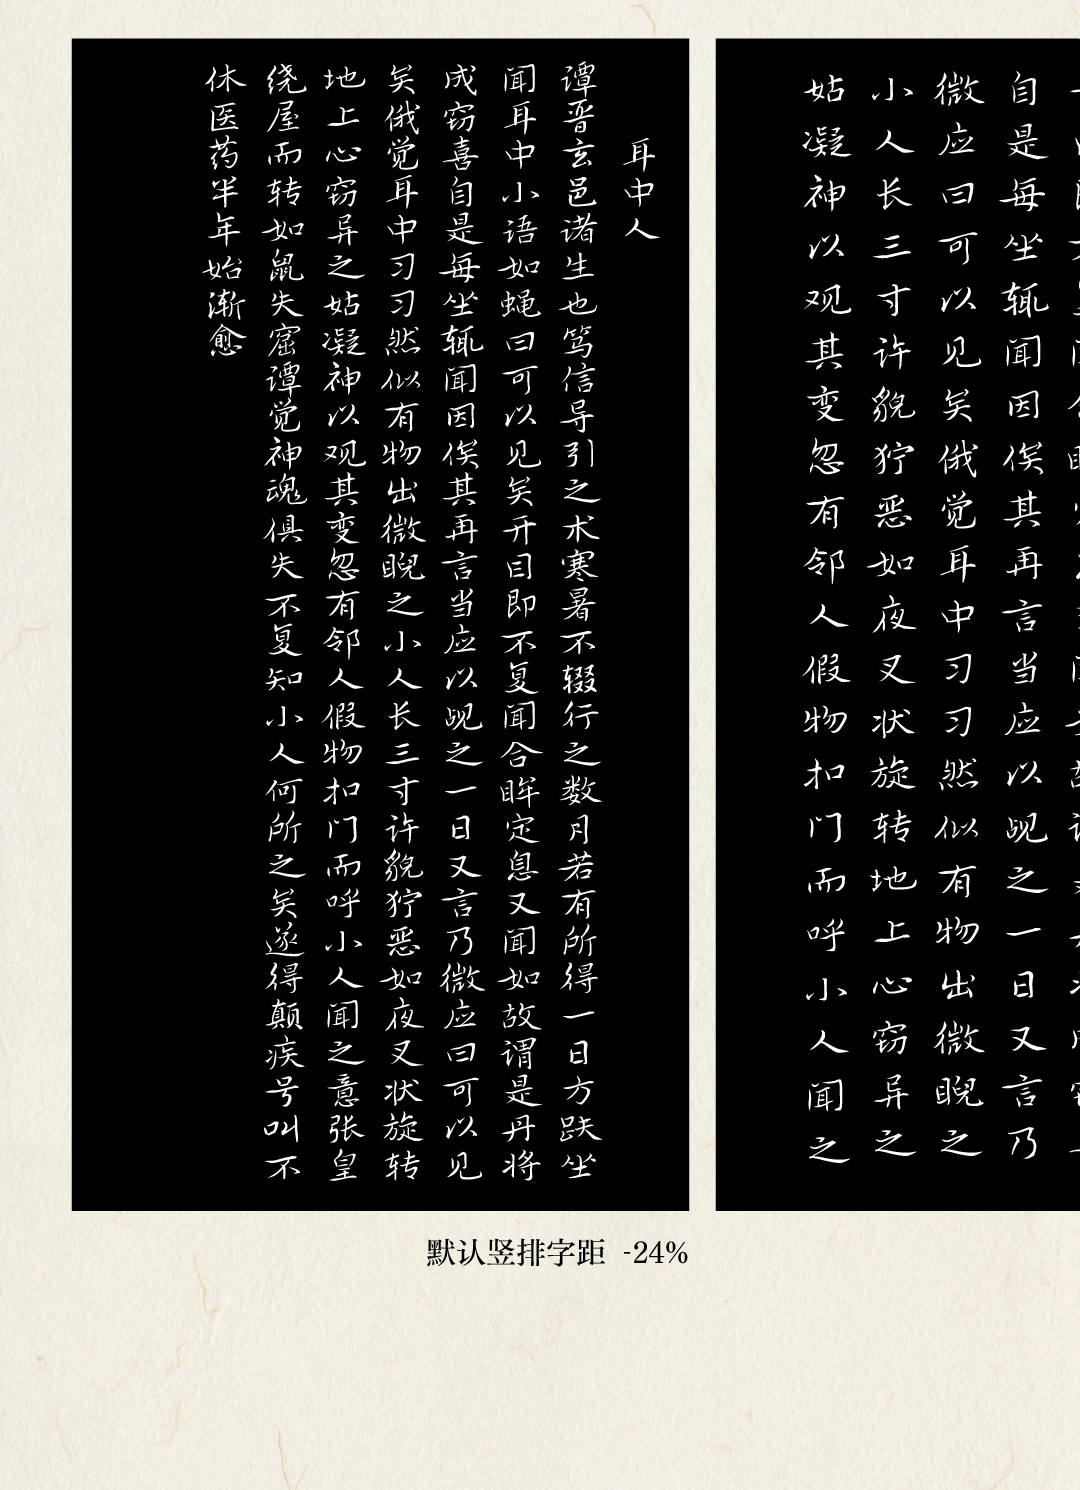 耳中人
谭晋玄邑诸生也笃信导引之术寒暑不辍行之数月若有所得一日方趺坐
闻耳中小语如蝇曰可以见矣开目即不复闻合眸定息又闻如故谓是丹将
成窃喜自是每坐辄闻因俟其再言当应以觇之一日又言乃微应曰可以见
矣俄觉耳中习习然似有物出微睨之小人长三寸许貌狞恶如夜叉状旋转
地上心窃异之姑凝神以观其变忽有邻人假物扣门而呼小人闻之意张皇
绕屋而转如鼠失窟谭觉神魂俱失不复知小人何所之矣遂得颠疾号叫不
休医药半年始渐愈
默认竖排字距 -24%
自是每坐辄闻因俟其再言当应以觇之一日又言乃
微应曰可以见矣俄觉耳中习习然似有物出微睨之
小人长三寸许貌狞恶如夜叉状旋转地上心窃异之
姑凝神以观其变忽有邻人假物扣门而呼小人闻之